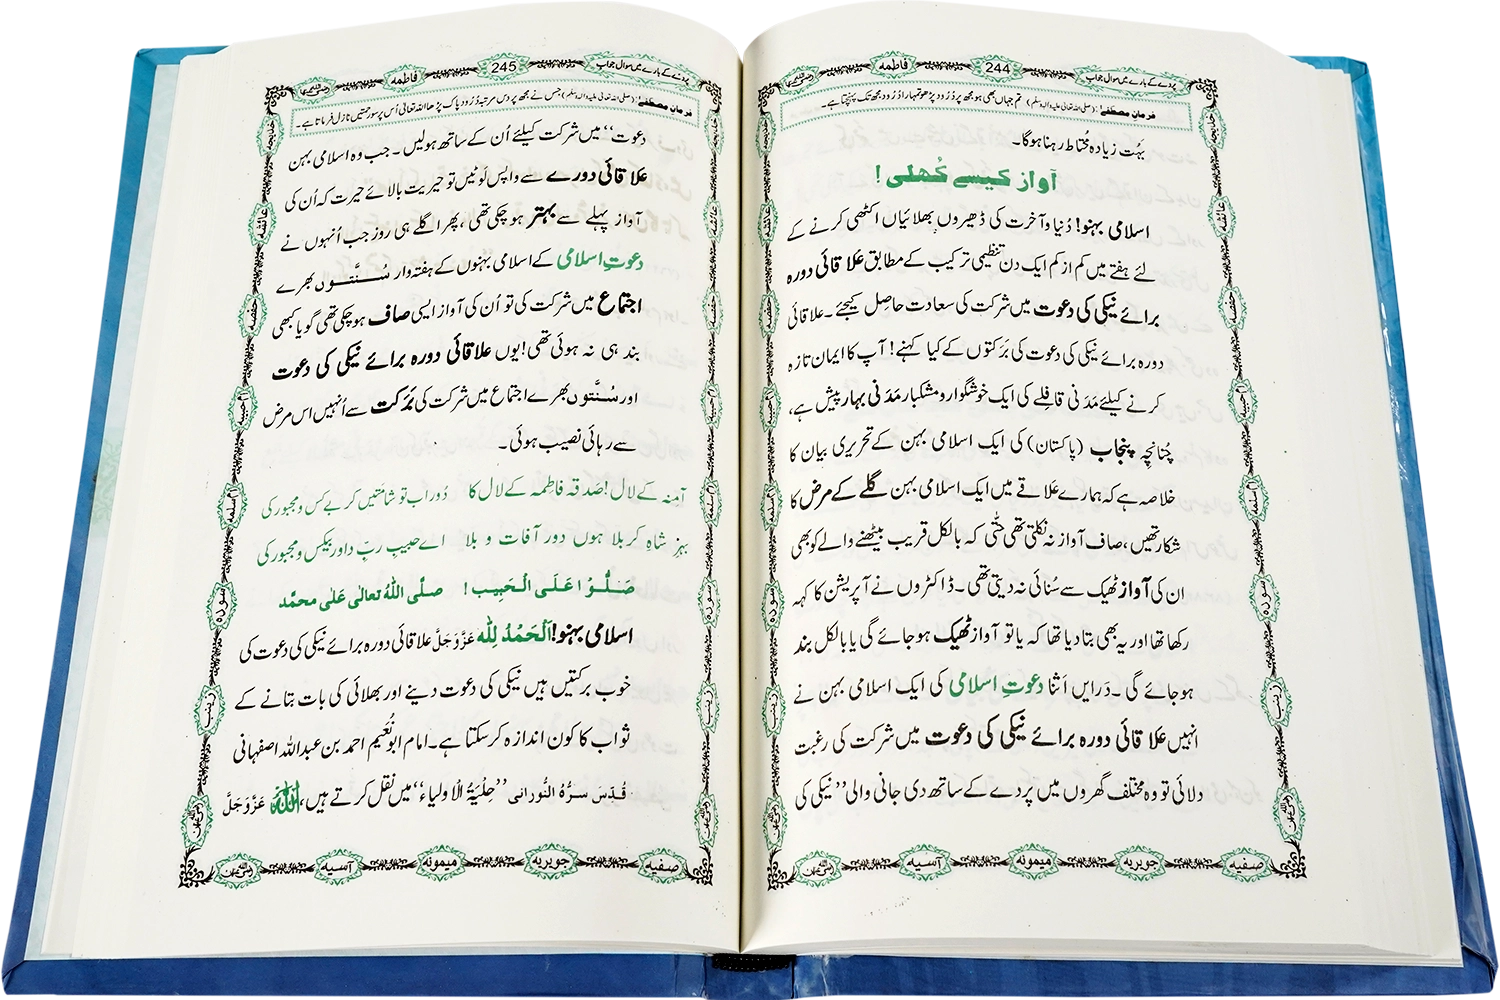 پردے کے بارے میں سوال جواب
244
فاطمہ
فرمانِ مصطفٰے: (صلی اللہ تعالیٰ علیہ والہٖ وسلم) تم جہاں بھی ہو مجھ پر دُرُود پڑھو تمہارا دُرُود مجھ تک پہنچتا ہے۔
بہُت زیادہ مُحتاط رہنا ہوگا۔
آواز کیسے کُھلی !
اسلامی بہنو! دُنیا و آخرت کی ڈھیروں بھلائیاں اکٹھی کرنے کے
لئے ہفتے میں کم از کم ایک دن تنظیمی ترکیب کے مطابق علاقائی دورہ
برائے نیکی کی دعوت میں شرکت کی سعادت حاصِل کیجئے۔ علاقائی
دورہ برائے نیکی کی دعوت کی بَرَکتوں کے کیا کہنے! آپ کا ایمان تازہ
کرنے کیلئے مَدَنی قافِلے کی ایک خوشگوار و مشکبار مَدَنی بہار پیش ہے،
چُنانچِہ پنجاب (پاکستان) کی ایک اسلامی بہن کے تحریری بیان کا
خلاصہ ہے کہ ہمارے عَلاقے میں ایک اسلامی بہن گلے کے مرض کا
شکار تھیں، صاف آواز نہ نکلتی تھی حتّٰی کہ بالکل قریب بیٹھنے والے کو بھی
ان کی آواز ٹھیک سے سُنائی نہ دیتی تھی۔ ڈاکٹروں نے آپریشن کا کہہ
رکھا تھا اور یہ بھی بتا دیا تھا کہ یا تو آواز ٹھیک ہو جائے گی یا بالکل بند
ہو جائے گی۔ دَرایں اَثنا دعوتِ اسلامی کی ایک اسلامی بہن نے
انہیں علاقائی دورہ برائے نیکی کی دعوت میں شرکت کی رغبت
دلائی تو وہ مختلف گھروں میں پردے کے ساتھ دی جانی والی ’’نیکی کی
خدیجہ
عائشہ
حفصہ
ام حبیبہ
ام سلمہ
سودہ
زینب
صفیہ
جویریہ
میمونہ
آسیہ
پردے کے بارے میں سوال جواب
245
فاطمہ
فرمانِ مصطفٰے: (صلی اللہ تعالیٰ علیہ والہٖ وسلم) جس نے مجھ پر دس مرتبہ دُرُود پاک پڑھا اللہ تعالیٰ اُس پر سو رحمتیں نازل فرماتا ہے۔
دعوت‘‘ میں شرکت کیلئے اُن کے ساتھ ہولیں۔ جب وہ اسلامی بہن
علاقائی دورے سے واپس لَوٹیں تو حیریت بالائے حیرت کہ اُن کی
آواز پہلے سے بہتر ہو چکی تھی، پھر اگلے ہی روز جب اُنہوں نے
دعوتِ اسلامی کے اسلامی بہنوں کے ہفتہ وار سُنَّتوں بھرے
اجتماع میں شرکت کی تو اُن کی آواز ایسی صاف ہو چکی تھی گویا کبھی
بند ہی نہ ہوئی تھی! یوں علاقائی دورہ برائے نیکی کی دعوت
اور سُنَّتوں بھرے اجتماع میں شرکت کی بَرَکت سے اُنہیں اس مرض
سے رہائی نصیب ہوئی۔
آمِنہ کے لال! صَدقہ فاطِمہ کے لال کا دُور اب تو شامَتیں کر بے کس و مجبور کی
بہرِ شاہِ کربلا ہوں دور آفات و بلا اے حبیبِ ربِّ داور بیکس و مجبور کی
صَلُّوْا عَلَی الْحَبِیب ! صلَّی اللہُ تعالٰی علٰی محمَّد
اسلامی بہنو! اَلْحَمْدُ لِلّٰہ عَزَّوَجَلَّ علاقائی دورہ برائے نیکی کی دعوت کی
خوب برکتیں ہیں نیکی کی دعوت دینے اور بھلائی کی بات بتانے کے
ثواب کا کون اندازہ کر سکتا ہے۔ امام ابو نُعَیم احمد بن عبد اللہ اصفہانی
قُدِّسَ سرُّہُ النُّورانی ’’حِلْیَۃُ الْاولیاء‘‘ میں نقل کرتے ہیں، اللہ عَزَّوَجَلَّ
خدیجہ
عائشہ
حفصہ
ام حبیبہ
ام سلمہ
سودہ
زینب
صفیہ
جویریہ
میمونہ
آسیہ